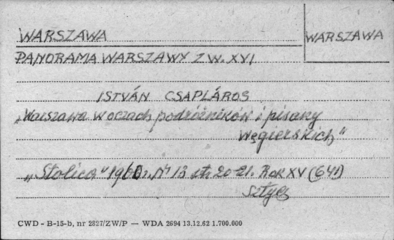 WARSZAWA
WARSZAWA
PANORAMA WARSZAWY Z W. XVI
ISTVÁN CSAPLÁROS
„Warszawa w oczach podróżników i pisarzy
węgierskich"
„Stolica" 1960 r. Nr 13 str. 20-21. Rok XV (641)
Sztych
CWD - B-15-b, nr 2827/ZW/P — WDA 2694 13.12.62 1.700.000